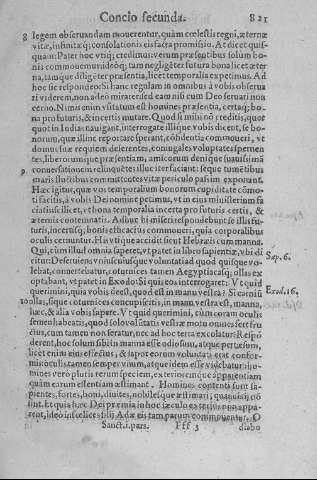 Concio secunda. 821
8 legem obseruandam mouerentur, quàm cælestis regni, æternæ
vitæ, infinitæq; consolationis eis facta promissio. At dicet quis-
quam: Pater hoc vtiq; credimus: verum præsentibus solum bo-
nis commouemur ideòq; tam negligẽter futura bona licet æter-
na, tamque diligẽter præsentia, licet temporalia expetimus. Ad
hoc sic respondeo: Si hanc regulam in omnibus à vobis obserua
ri viderem, non adeò mirarer sed eam nũ cum Deo seruari non
cerno. Nimis enim vsitatum est homines præsentia, certaq; bo-
na pro futuris, & incertis mutare. Quod si mihi nõ creditis, quot
quot in Indias nauigant, interrogate illíque vobis dicent, se bo-
norum, quæ illinc reportare sperant, cõfidentia commoueri, vt
domui suæ requiem delerentes, coniuges voluptates serpenen
tes, liberorumque præsentiam, amicorum denique suauissimã
9 conuersationem relinquẽtes illuc iter faciant: seque tumẽtibus
maris fluctibus committentes vitæ periculo passim exponant.
Hæc igitur, quæ vos temporalium bonorum cupiditate cõmo-
ti facitis, à vobis Dei nomine petimus, vt in eius ministerium fa
ciatis
& vt bona temporalia incerta pro futuris certis, &
æternis contemnatis. Ad hæc hi miseri respondebunt se illis fu-
turis, incertisq; bonis efficaciter commoueri, quia corporalibus
oculis cernuntur. His vtique accidit sicut Hebræis cum manna.
Qui, cùm illud omnia saperet, vt patet in libro sapientiæ, vbi di
citur: Deseruiens vniuscuiusque voluntati ad quod quisque vo-
Sap. 6.
lebat, conuertebatur, coturnices tamen Aegyptiacasq; ollas ex
optabant, vt patet in Exodo: Si quis eos interrogaret: Vt quid
querimini, quia vobis deest, quod est in manna vestra? Si carniũ
Exod. 16.
10 ollas, sique coturnices concupiscitis, in manna vestra est, manna,
hæc, & alia vobis sapere. Vt quid querimini, cùm coram oculis
semen habeatis, quod solo voluntatis vestræ motu omnes sert fru
ctus, cum tamen non seratur, nec ad hoc terra excolatur: Respõ
derent, hoc solum sibi in manna esse odiosum, atque pertæsum,
licet enim eius effectus, & sapor eorum voluntati erat confor-
mis: oculis tamen semper vnum, atque idem esse videbatur: ho-
mines verò pluris rerum speciem, exterioremque apparentiam
quàm earum essentiam æstimant. Homines contenti sunt sa-
pientes, fortes, boni, diuites, nobilesque æstimari, quamuis id nõ
sint. Et quia hæc Dei præmia in hoc sæculo exterius non appa-
rent, ideo infœlices filij Adæ eis tam parum commouentur. O
Sanct. i. pars. Fff 3 diabo